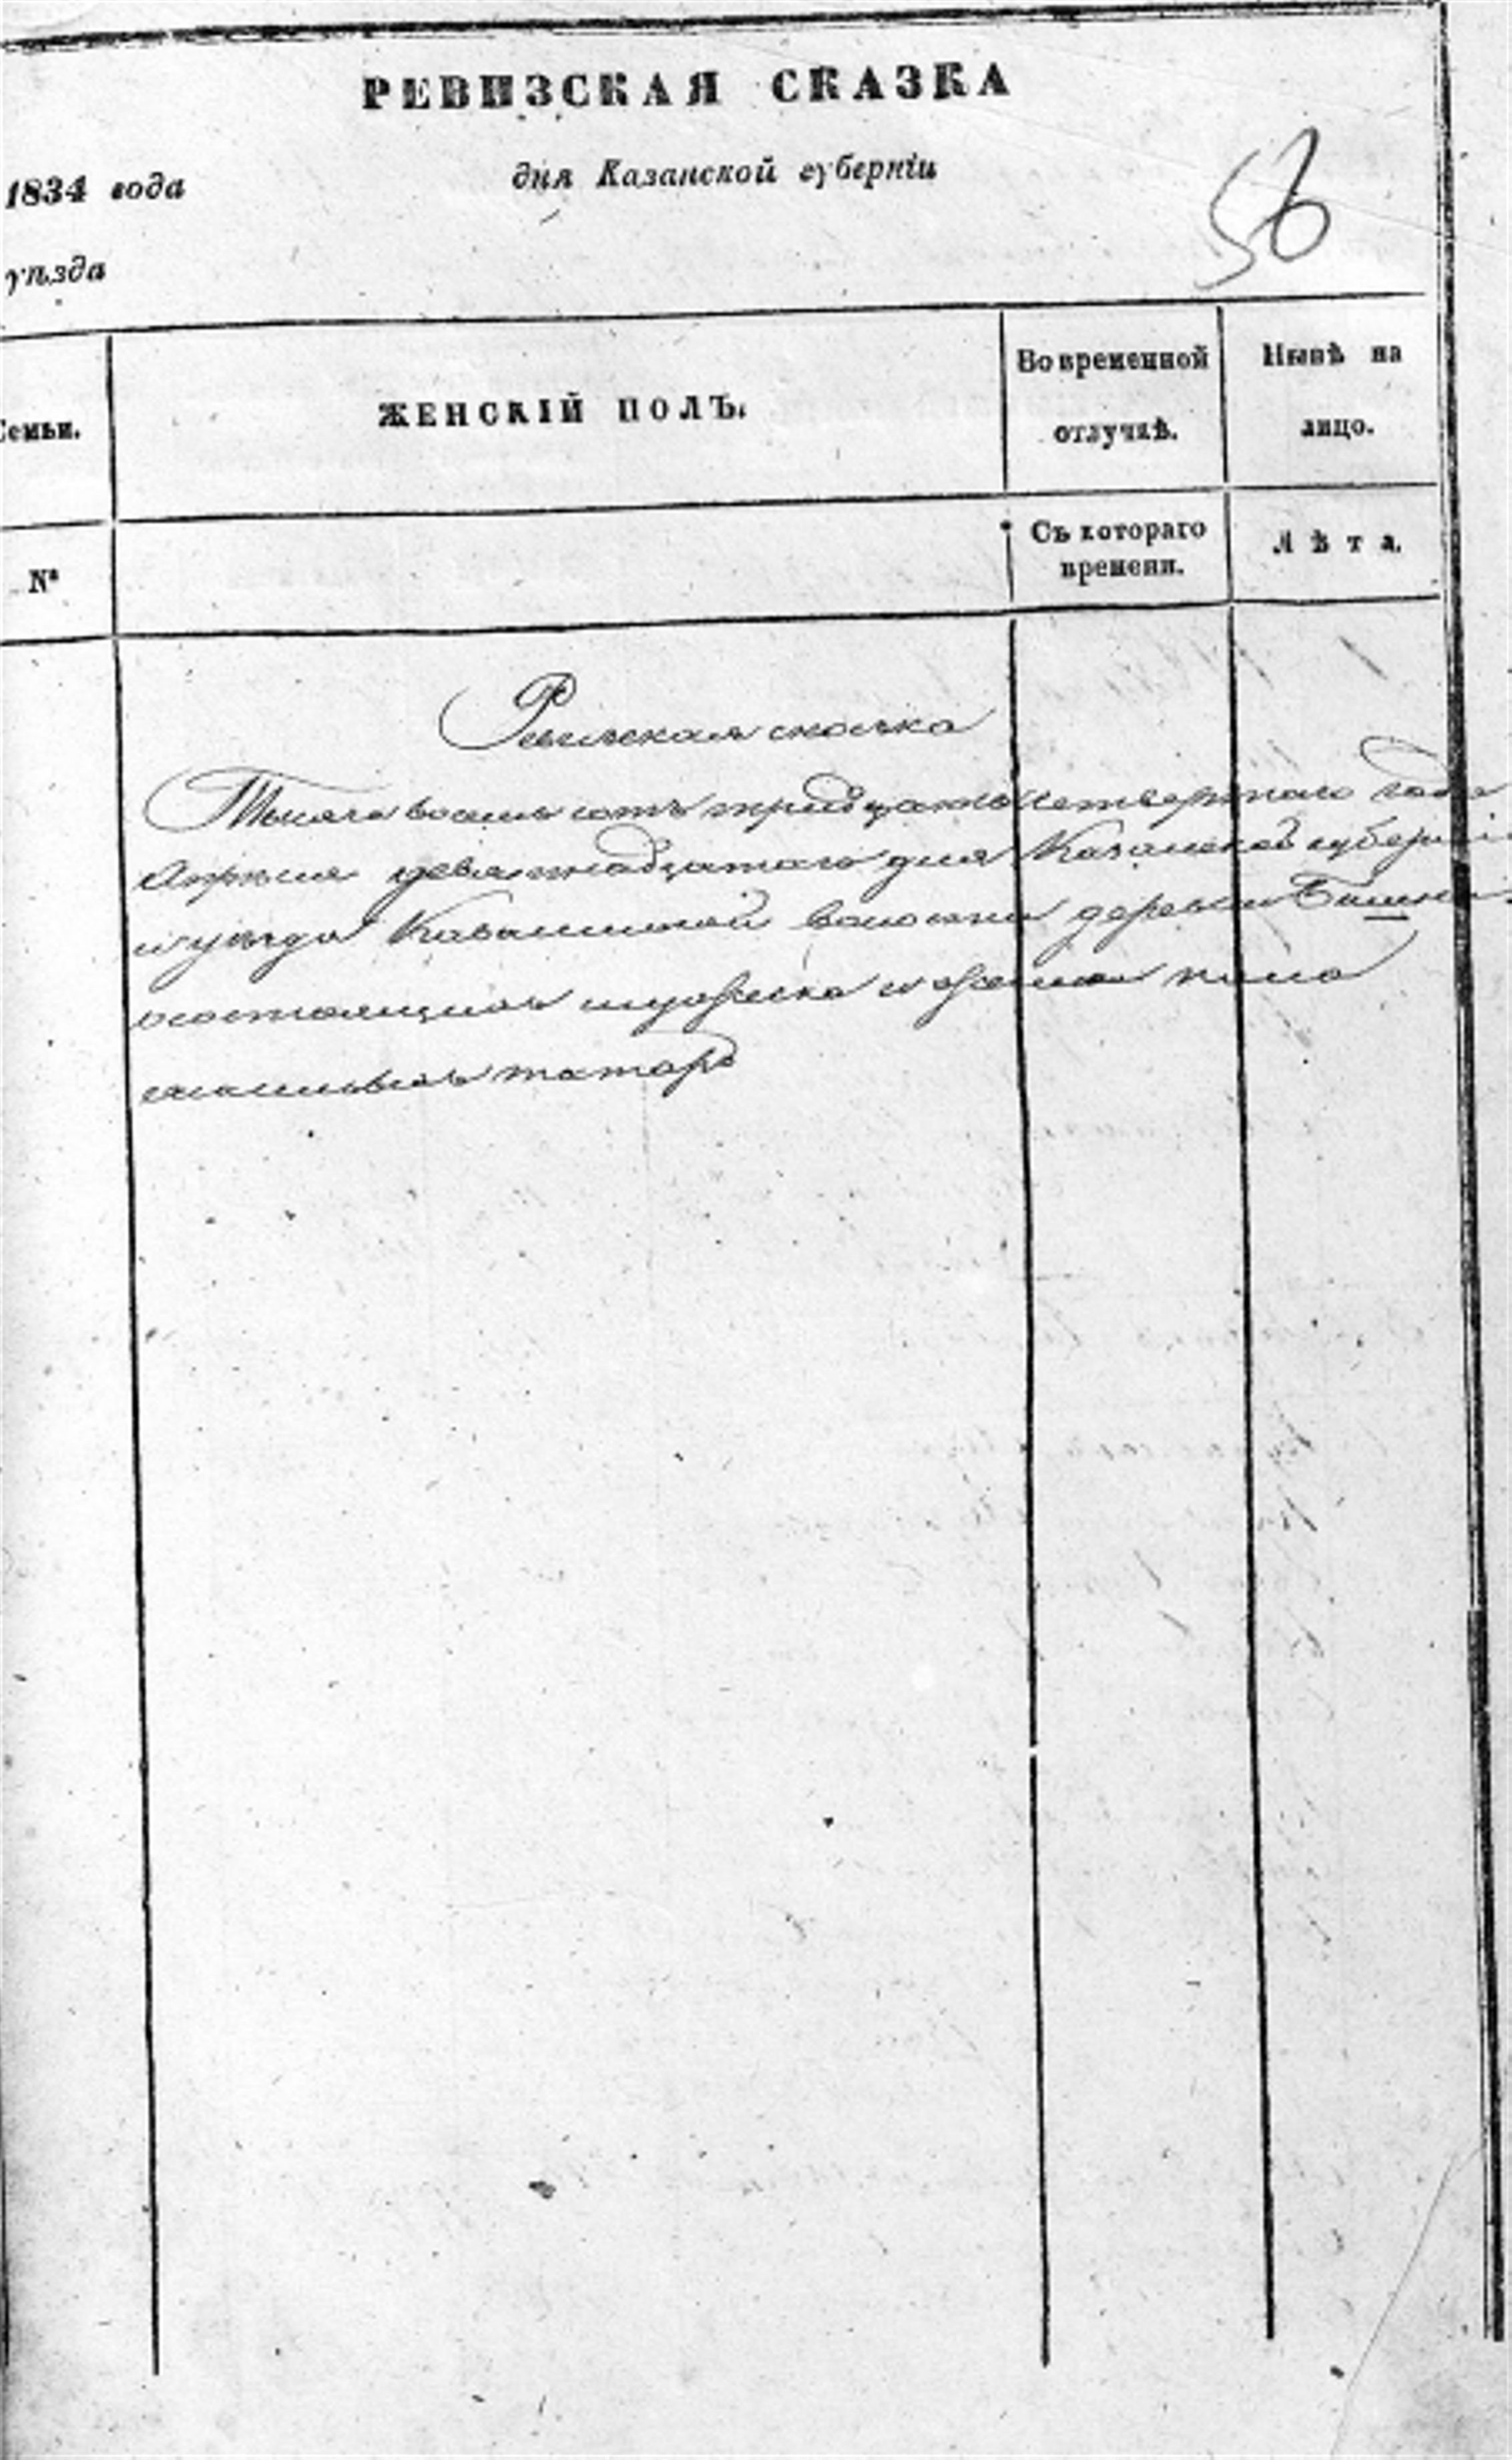 РЕВИЗСКАЯ СКАЗКА
1834 года дня Казанской губерніи
56
уѣзда
Семьи.
ЖЕНСКІЙ ПОЛЪ.
Во временной отлучкѣ.
Нынѣ на лицо.
№
Съ котораго времени.
Лѣта.
Ревизская сказка
Тысяча восемь сотъ тридцать четвертаго года
Апреля девятнадцатаго дня Казанской губерніи
и уѣзда волости деревни
состоящихъ мужеска и женска пола
татаръ